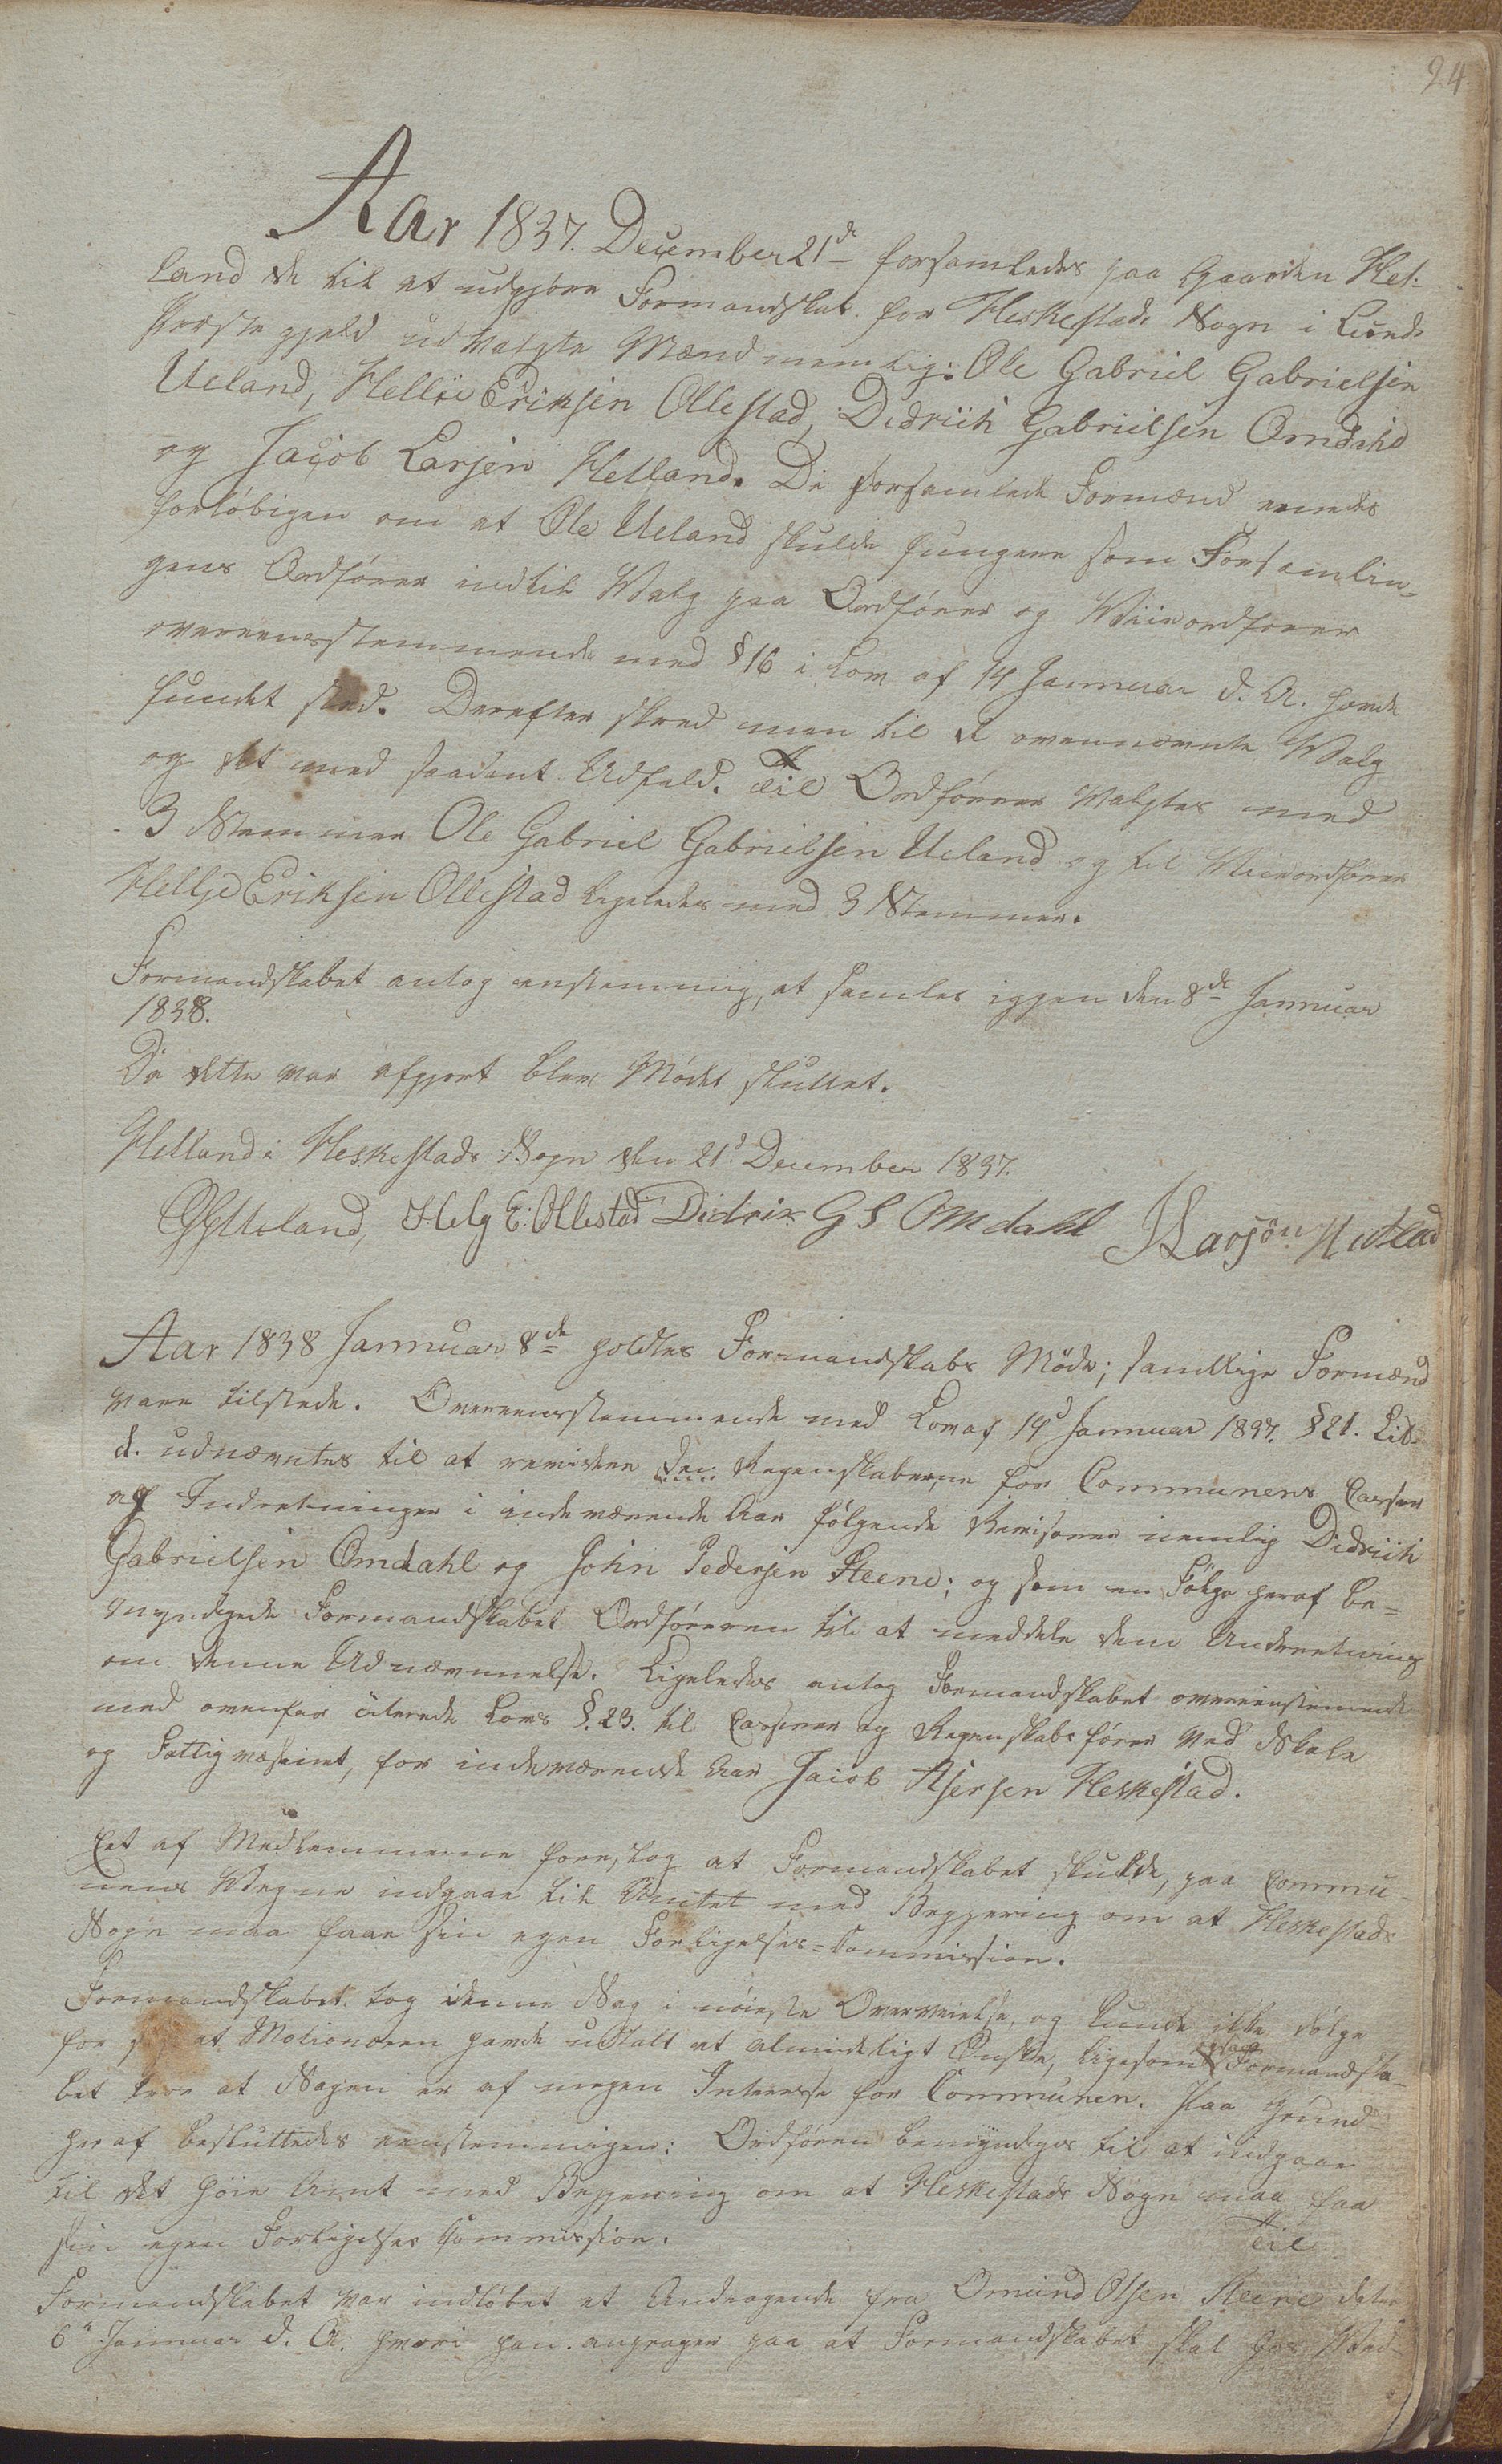 24
Aar 1837. December 21de forsamledes paa Gaarden Hel-
land de til at udgjøre Formandskab for Heskestads Sogn i Lunds
Præstegjeld udvalgte Mænd nemlig: Ole Gabriel Gabrielsen
Ueland, Hellje Eriksen Ollestad, Didrich Gabrielsen Omdahl
og Jacob Larsen Helland. De forsamlede Formænd enedes
forløbigen om at Ole Ueland skulde fungere som Forsamlin-
gens Ordfører indtil Valg paa Ordfører og Viceordfører
overeensstemmende med § 16 i Lov af 14 Januar d. A. havde
fundet sted. Derefter skred man til de ovennævnte Valg
og det med saadant Udfald. Til Ordfører valgtes med
3 Stemmer Ole Gabriel Gabrielsen Ueland og til Viceordfører
Hellje Eriksen Ollestad ligeledes med 3 Stemmer.
Formandskabet antog enstemmig, at samles igjen den 8de Januar
1838.
Da dette var afgjort blev Mødet sluttet.
Helland i Heskestads Sogn den 21d December 1837.
OGUeland, Helg E. Ollestad Didrik G S Omdahl JLarsön Hetland
Aar 1838 Januar 8de holdtes Formandskabs Møde; samtlige Formænd
vare tilstede. Overeensstemmende med Lov af 14d Januar 1837. §21. Lit.
d. udnævntes til at revidere Regenskaberne for Communens Casser
og Indretninger i indeværende Aar følgende Revisorer nemlig Didrich
Gabrielsen Omdahl og John Pedersen Steene; og som en Følge heraf be-
myndigede Formandskabet Ordføreren til at meddele dem Underretning
om denne Udnævnelse. Ligeledes antog Formandskabet overeenstemmende
med ovenfor citerede Lovs §. 23. til Casserer og Regenskabsfører ved Skole
og Fattigvæsenet, for indeværende Aar Jacob Asersen Heskestad.
Eet af Medlemmerne foreslog at Formandskabet skulde, paa Commu-
nens Vegne indgaae til Amtet med Begjering om at Heskestads
Sogn maa faae sin egen Forligelses-Commission.
Formandskabet tog denne Sag i nøieste Overveielse, og kunde ikke dølge
for sig at Motionæren havde udtalt et almindeligt Ønske, ligesom Formandska-
bet troe at Sagen er af megen Interesse for Communen. Paa Grund
heraf besluttedes eenstemmigen: Ordføreren bemyndiges til at indgaae
til det høie Amt med Begjering om at Heskestads Sogn maa faa
sin egen Forligelses Commission. Til
Formandskabet var indløbet et Andragende fra Omund Olsen Steene dateret
6te Januar d. A. hvori han andrager paa at Formandskabet skal hos Ved-